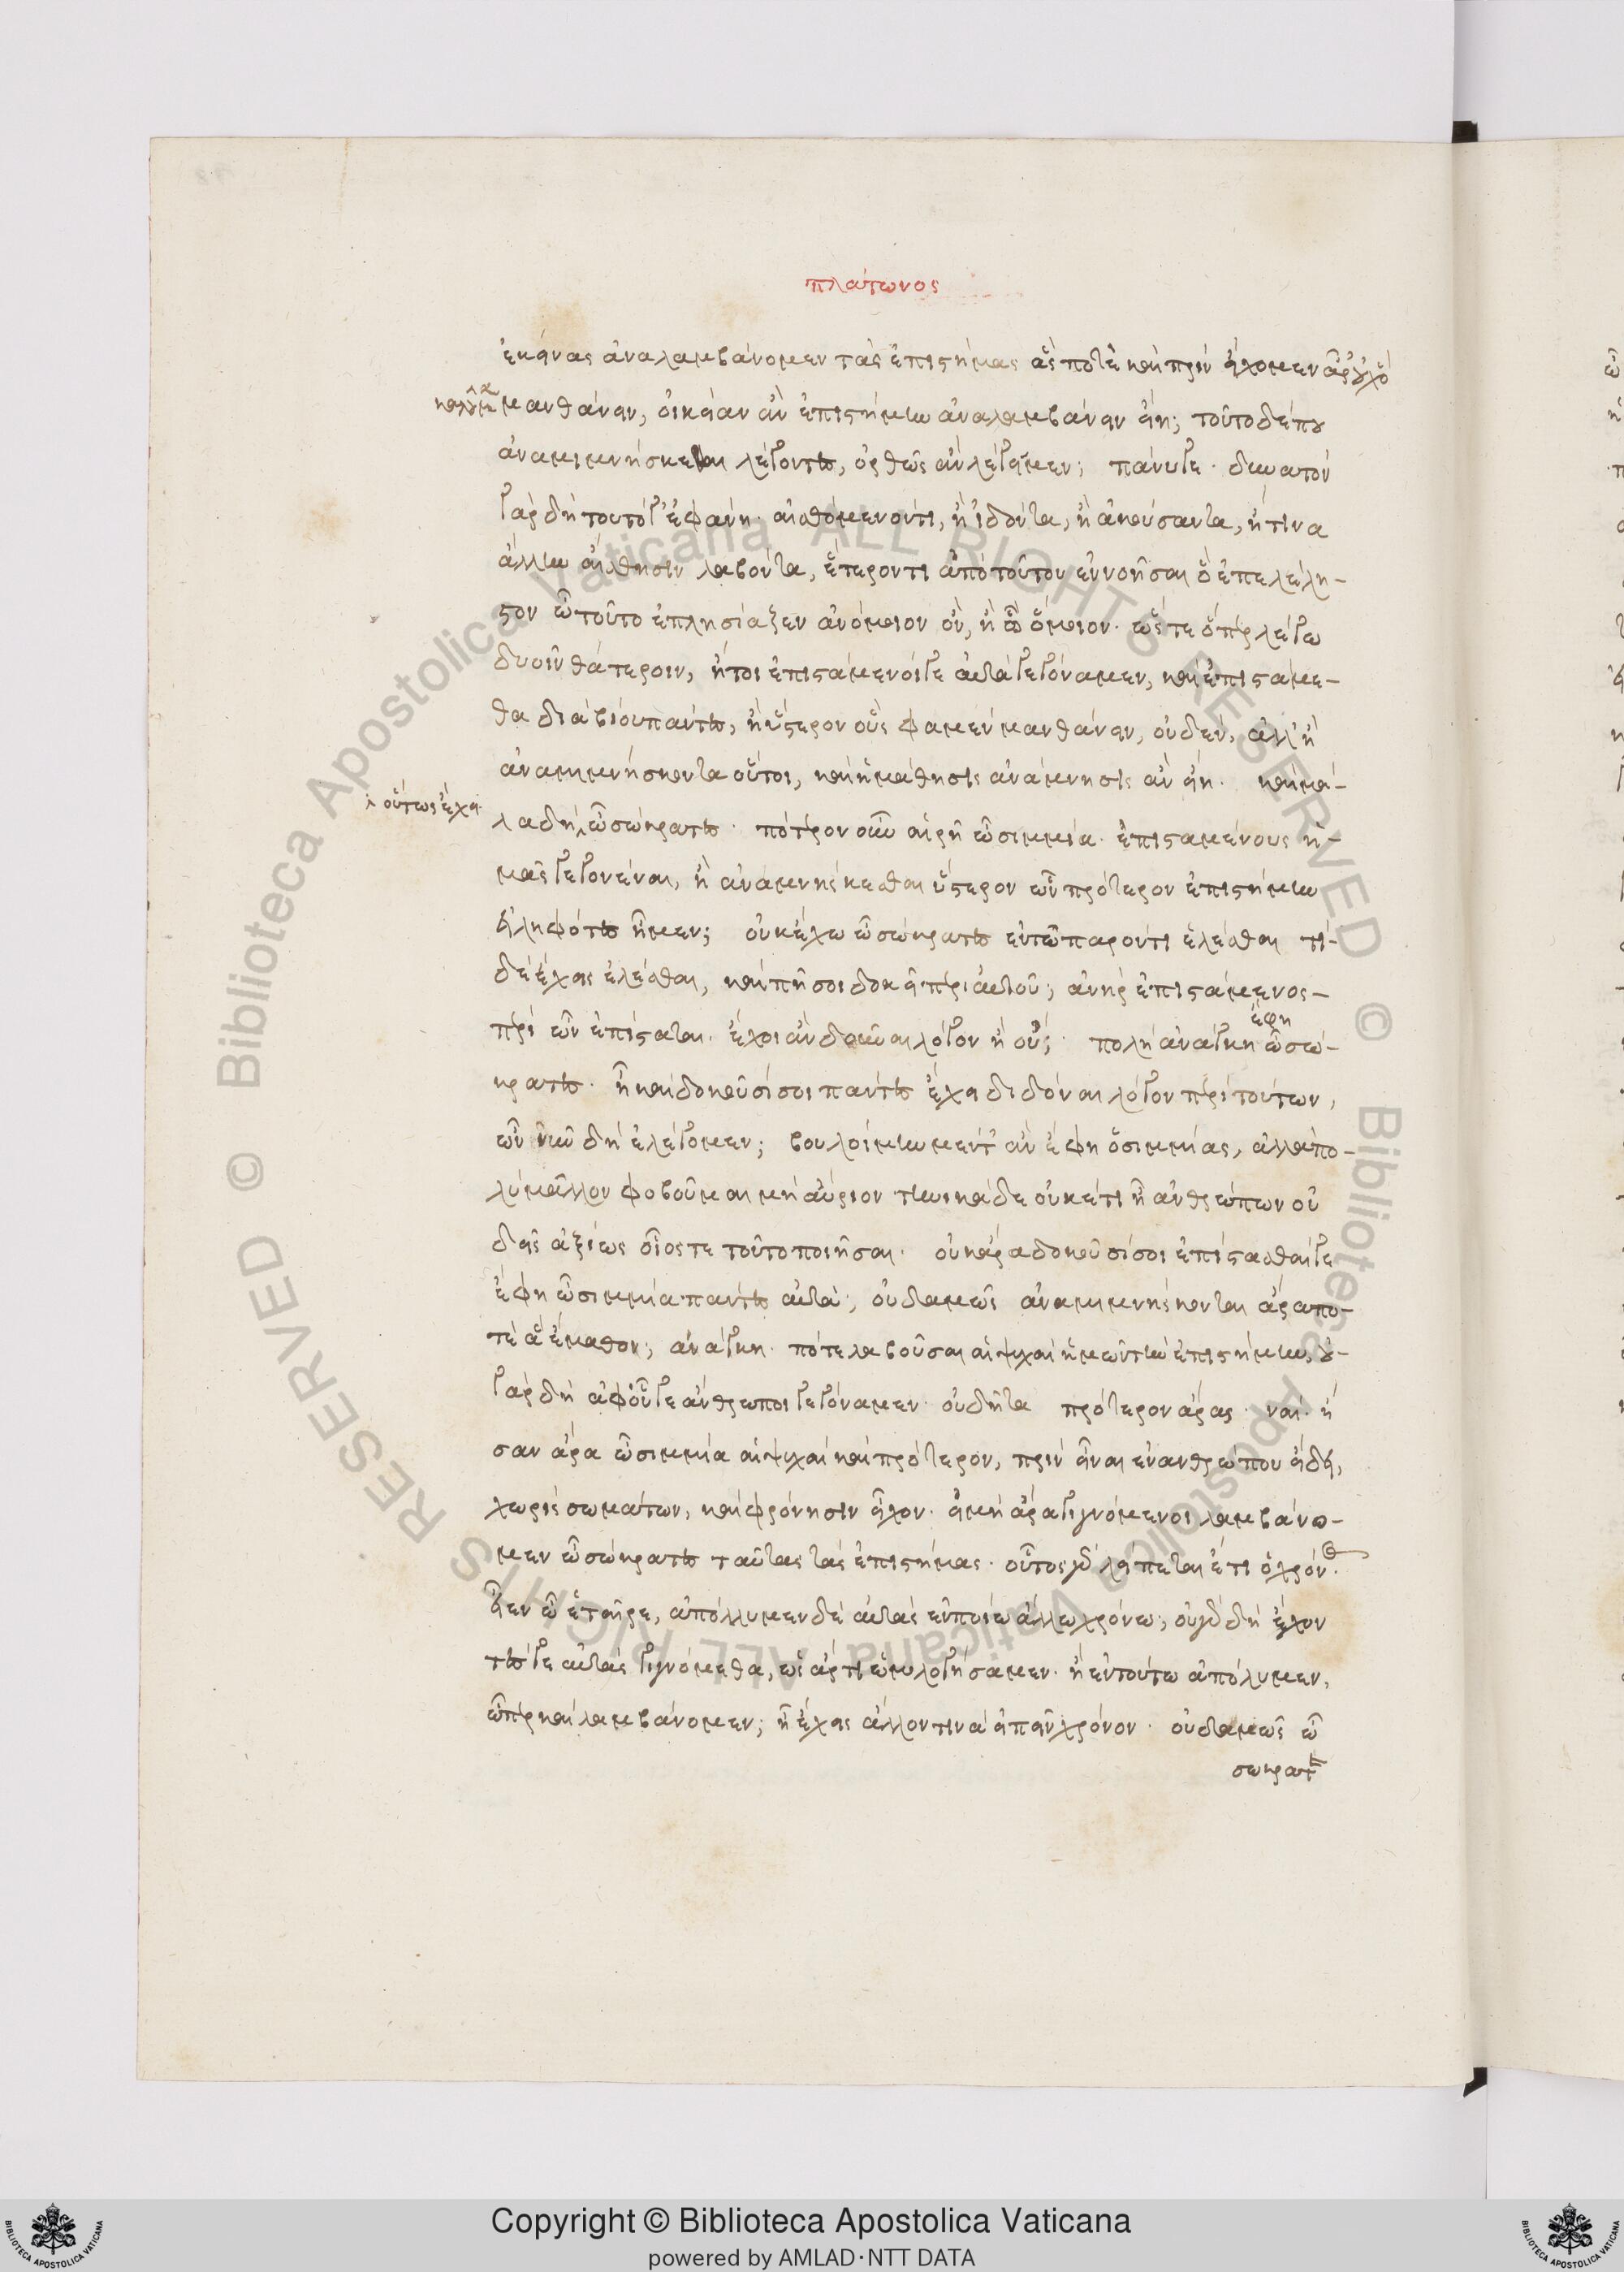 πλάτωνος
ἐκείνας ἀναλαμβάνομεν τὰς ἐπιστήμας ἅς ποτὲ καὶ πρὶν εἴχομεν ἆρ' οὐχ ὃ
καλοῦμεν μανθάνειν, οἰκείαν ἂν ἐπιστήμην ἀναλαμβάνειν εἴη; τοῦτο δέ που
ἀναμιμνήσκεσθαι λέγοντες, ὀρθῶς ἂν λέγοιμεν; πάνυ γε· δυνατὸν
γὰρ δὴ τοῦτό γ' ἐφάνη· αἰσθόμενόν τι, ἢ ἰδόντα, ἢ ἀκούσαντα, ἤ τινα
ἄλλην αἴσθησιν λαβόντα, ἕτερόν τι ἀπὸ τούτου ἐννοῆσαι ὃ ἐπελέλη-
στο ᾧ τοῦτο ἐπλησίαζεν ἀνόμοιον ὂν, ἢ ᾧ ὅμοιον· ὥστε ὅπερ λέγω
δυοῖν θάτερον, ἤτοι ἐπιστάμενοί γε αὐτὰ γεγόναμεν, καὶ ἐπιστάμε-
θα διὰ βίου πάντες, ἢ ὕστερον οὕς φαμεν μανθάνειν, οὐδὲν, ἀλλ' ἢ
ἀναμιμνήσκονται οὗτοι, καὶ ἡ μάθησις ἀνάμνησις ἂν εἴη· καὶ μά-
οὕτως ἔχει
λα δὴ ὦ σώκρατες· πότερον οὖν αἱρῇ ὦ σιμμία· ἐπισταμένους ἡ-
μᾶς γεγονέναι, ἢ ἀναμιμνήσκεσθαι ὕστερον ὧν πρότερον ἐπιστήμην
εἰληφότες ἦμεν; οὐκ ἔχω ὦ σώκρατες ἐν τῷ παρόντι ἑλέσθαι τί
δέ ἔχεις ἑλέσθαι, καὶ πῇ σοι δοκεῖ περὶ αὐτοῦ; ἀνὴρ ἐπιστάμενος
ἔφη
περὶ ὧν ἐπίσταται· ἔχοι ἂν δοῦναι λόγον ἢ οὔ; πολλὴ ἀνάγκη ὦ σώ-
κρατες· ἦ καὶ δοκοῦσί σοι πάντες ἔχειν διδόναι λόγον περὶ τούτων,
ὧν νῦν δὴ ἐλέγομεν; βουλοίμην μέντ' ἂν ἔφη ὁ σιμμίας, ἀλλὰ πο-
λὺ μᾶλλον φοβοῦμαι μὴ αὔριον τηνικάδε οὐκέτι ᾖ ἀνθρώπων οὐ
δεὶς ἀξίως οἷός τε τοῦτο ποιῆσαι· οὐκ ἄρα δοκοῦσί σοι ἐπίστασθαί γε
ἔφη ὦ σιμμία πάντες αὐτά; οὐδαμῶς ἀναμιμνήσκονται ἄρα πο-
τὲ ἃ ἔμαθον; ἀνάγκη· πότε λαβοῦσαι αἱ ψυχαὶ ἡμῶν τὴν ἐπιστήμην, οὐ
γὰρ δὴ ἀφ' οὗ γε ἄνθρωποι γεγόναμεν· οὐ δῆτα πρότερον ἄρα· ναί· ἦ
σαν ἄρα ὦ σιμμία αἱ ψυχαὶ καὶ πρότερον, πρὶν εἶναι ἐν ἀνθρώπου εἴδει,
χωρὶς σωμάτων, καὶ φρόνησιν εἶχον· εἰ μὴ ἄρα γιγνόμενοι λαμβάνο-
μεν ὦ σώκρατες ταύτας τὰς ἐπιστήμας· οὗτος γὰρ λείπεται ἔτι ὁ χρόνος·
εἶεν ὦ ἑταῖρε, ἀπόλλυμεν δὲ αὐτὰς ἐν ποίῳ ἄλλῳ χρόνῳ; οὐ γὰρ δὴ ἔχον
τές γε αὐτὰς γιγνόμεθα, ὡς ἄρτι ὡμολογήσαμεν· ἢ ἐν τούτῳ ἀπόλυμεν,
ᾧπερ καὶ λαμβάνομεν; ἢ ἔχεις ἄλλον τινὰ εἰπεῖν χρόνον· οὐδαμῶς ὦ
σωκρατες
© Biblioteca Apostolica Vaticana ALL RIGHTS RESERVED
© Biblioteca Apostolica Vaticana ALL RIGHTS RESERVED
Copyright © Biblioteca Apostolica Vaticana
powered by AMLAD·NTT DATA
BIBLIOTECA APOSTOLICA VATICANA
BIBLIOTECA APOSTOLICA VATICANA